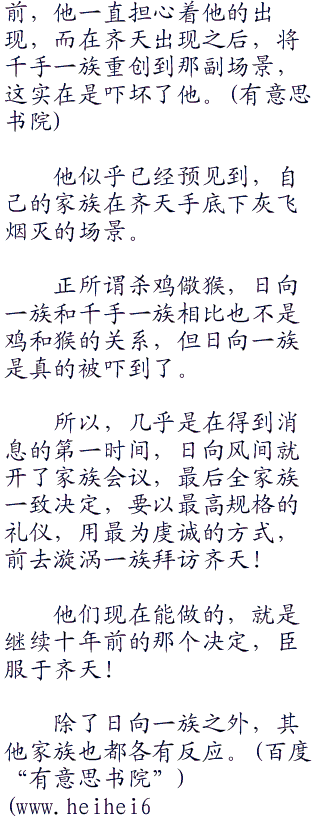 前，他一直担心着他的出
现，而在齐天出现之后，将
千手一族重创到那副场景，
这实在是吓坏了他。(有意思
书院)
他似乎已经预见到，自
己的家族在齐天手底下灰飞
烟灭的场景。
正所谓杀鸡儆猴，日向
一族和千手一族相比也不是
鸡和猴的关系，但日向一族
是真的被吓到了。
所以，几乎是在得到消
息的第一时间，日向风间就
开了家族会议，最后全家族
一致决定，要以最高规格的
礼仪，用最为虔诚的方式，
前去漩涡一族拜访齐天！
他们现在能做的，就是
继续十年前的那个决定，臣
服于齐天！
除了日向一族之外，其
他家族也都各有反应。(百度
“有意思书院”)
(www.heihei6